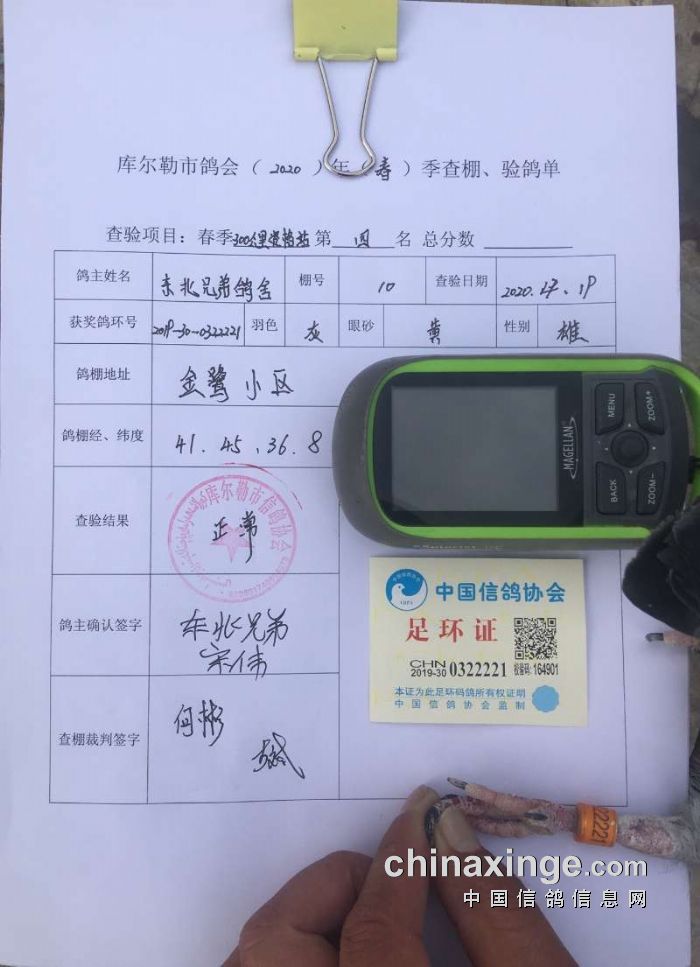 库尔勒市鸽会（2020）年（春）季查棚、验鸽单
查验项目：春季300公里资格站 第 四 名 总分数
鸽主姓名 东北兄弟鸽舍 棚号 10 查验日期 2020.4.19
获奖鸽环号 2019-30-0322221 羽色 灰 眼砂 黄 性别 雄
鸽棚地址 金鹭小区
鸽棚经、纬度 41.45、36.8
查验结果 正常
库尔勒市信鸽协会
鸽主确认签字 东北兄弟
宋伟
查棚裁判签字 何彬
MAGELLAN
MENU
ZOOM+
BACK
ZOOM-
中国信鸽协会
足环证
CHN
2019-30 0322221 校验码:164901
本证为此足环码鸽所有权证明
中国信鸽协会监制
22221
chinaxinge.com
中国信鸽信息网